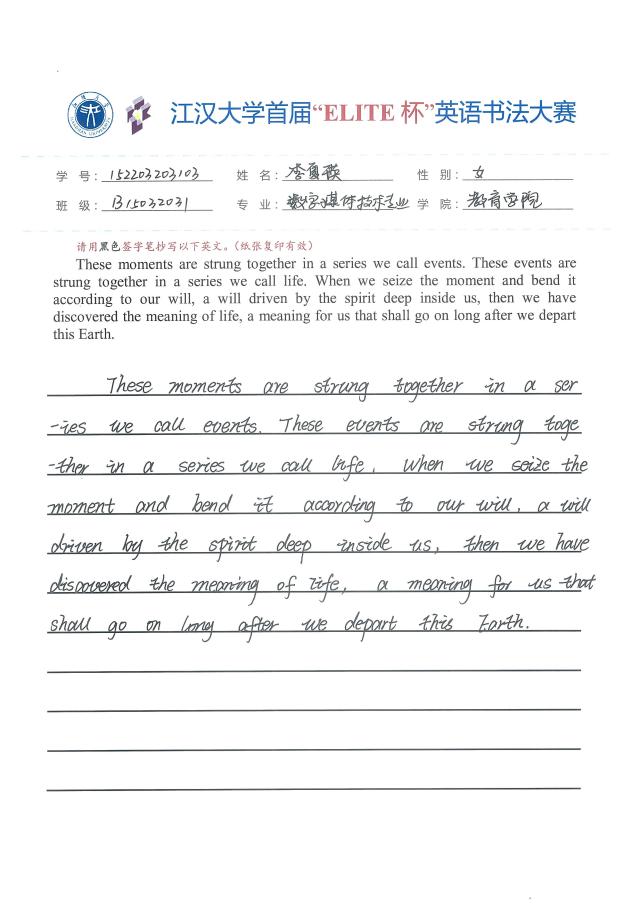 江汉大学首届“ELITE 杯”英语书法大赛
学 号: 152203203103 姓 名: 李夏 性 别: 女
班 级: B15032031 专 业: 数字媒体技术专业 学 院: 教育学院
请用黑色签字笔抄写以下英文。(纸张复印有效)
These moments are strung together in a series we call events. These events are
strung together in a series we call life. When we seize the moment and bend it
according to our will, a will driven by the spirit deep inside us, then we have
discovered the meaning of life, a meaning for us that shall go on long after we depart
this Earth.
These moments are strung together in a ser
-ies we call events. These events are strung toge
-ther in a series we call life. When we seize the
moment and bend it according to our will, a will
driven by the spirit deep inside us, then we have
discovered the meaning of life, a meaning for us that
shall go on long after we depart this Earth.